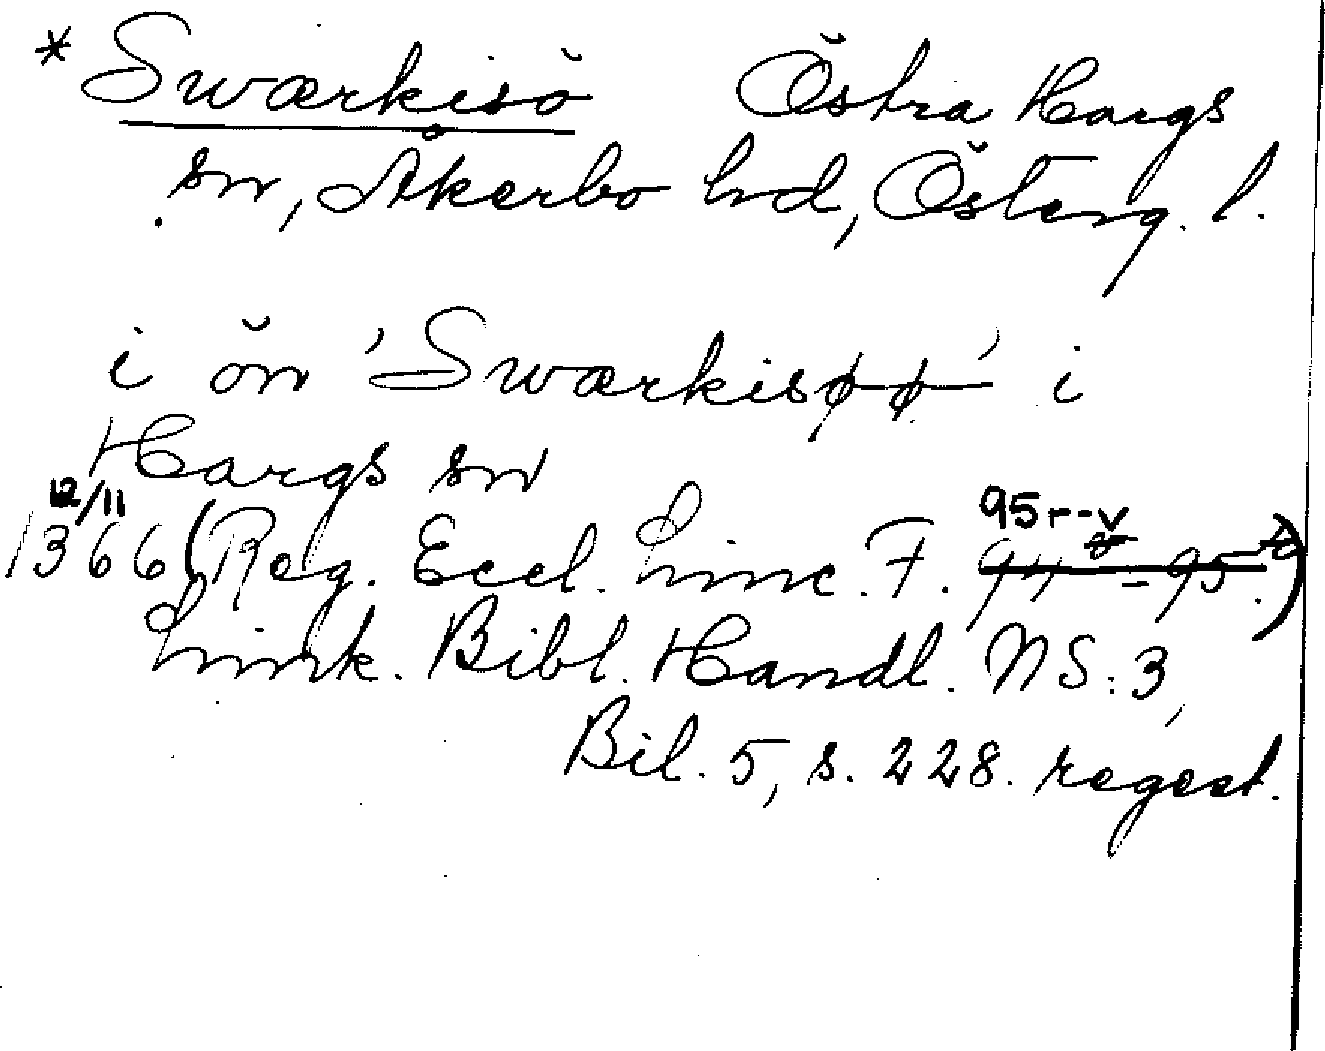 *Swærkisö Östra Hargs
sn, Åkerbo hd, Österg. l.
i ön 'Swærkisøø' i
Hargs sn
12/11 95r-v
1366 (Reg. Eccl. Linc. F. 94v-95v.)
Link. Bibl. Handl. NS:3,
Bil. 5, s. 228. regest.